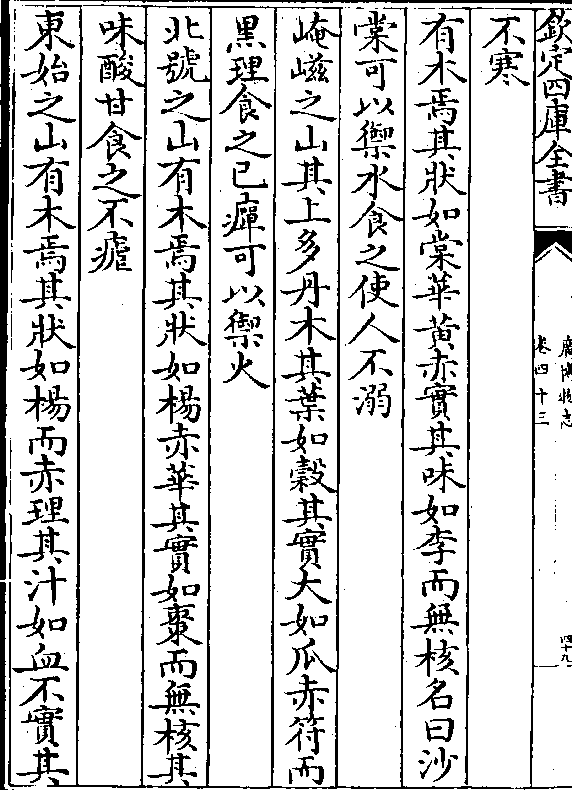 欽定四庫全書
廣博物志
卷四十三
四十九
不寒
有木焉其狀如棠華黄赤實其味如李而無核名曰沙
棠可以禦水食之使人不溺
崦嵫之山其上多丹木其葉如穀其實大如瓜赤符而
黒理食之已癉可以禦火
北號之山有木焉其狀如楊赤華其實如棗而無核其
味酸甘食之不瘧
東始之山有木焉其狀如楊而赤理其汁如血不實其